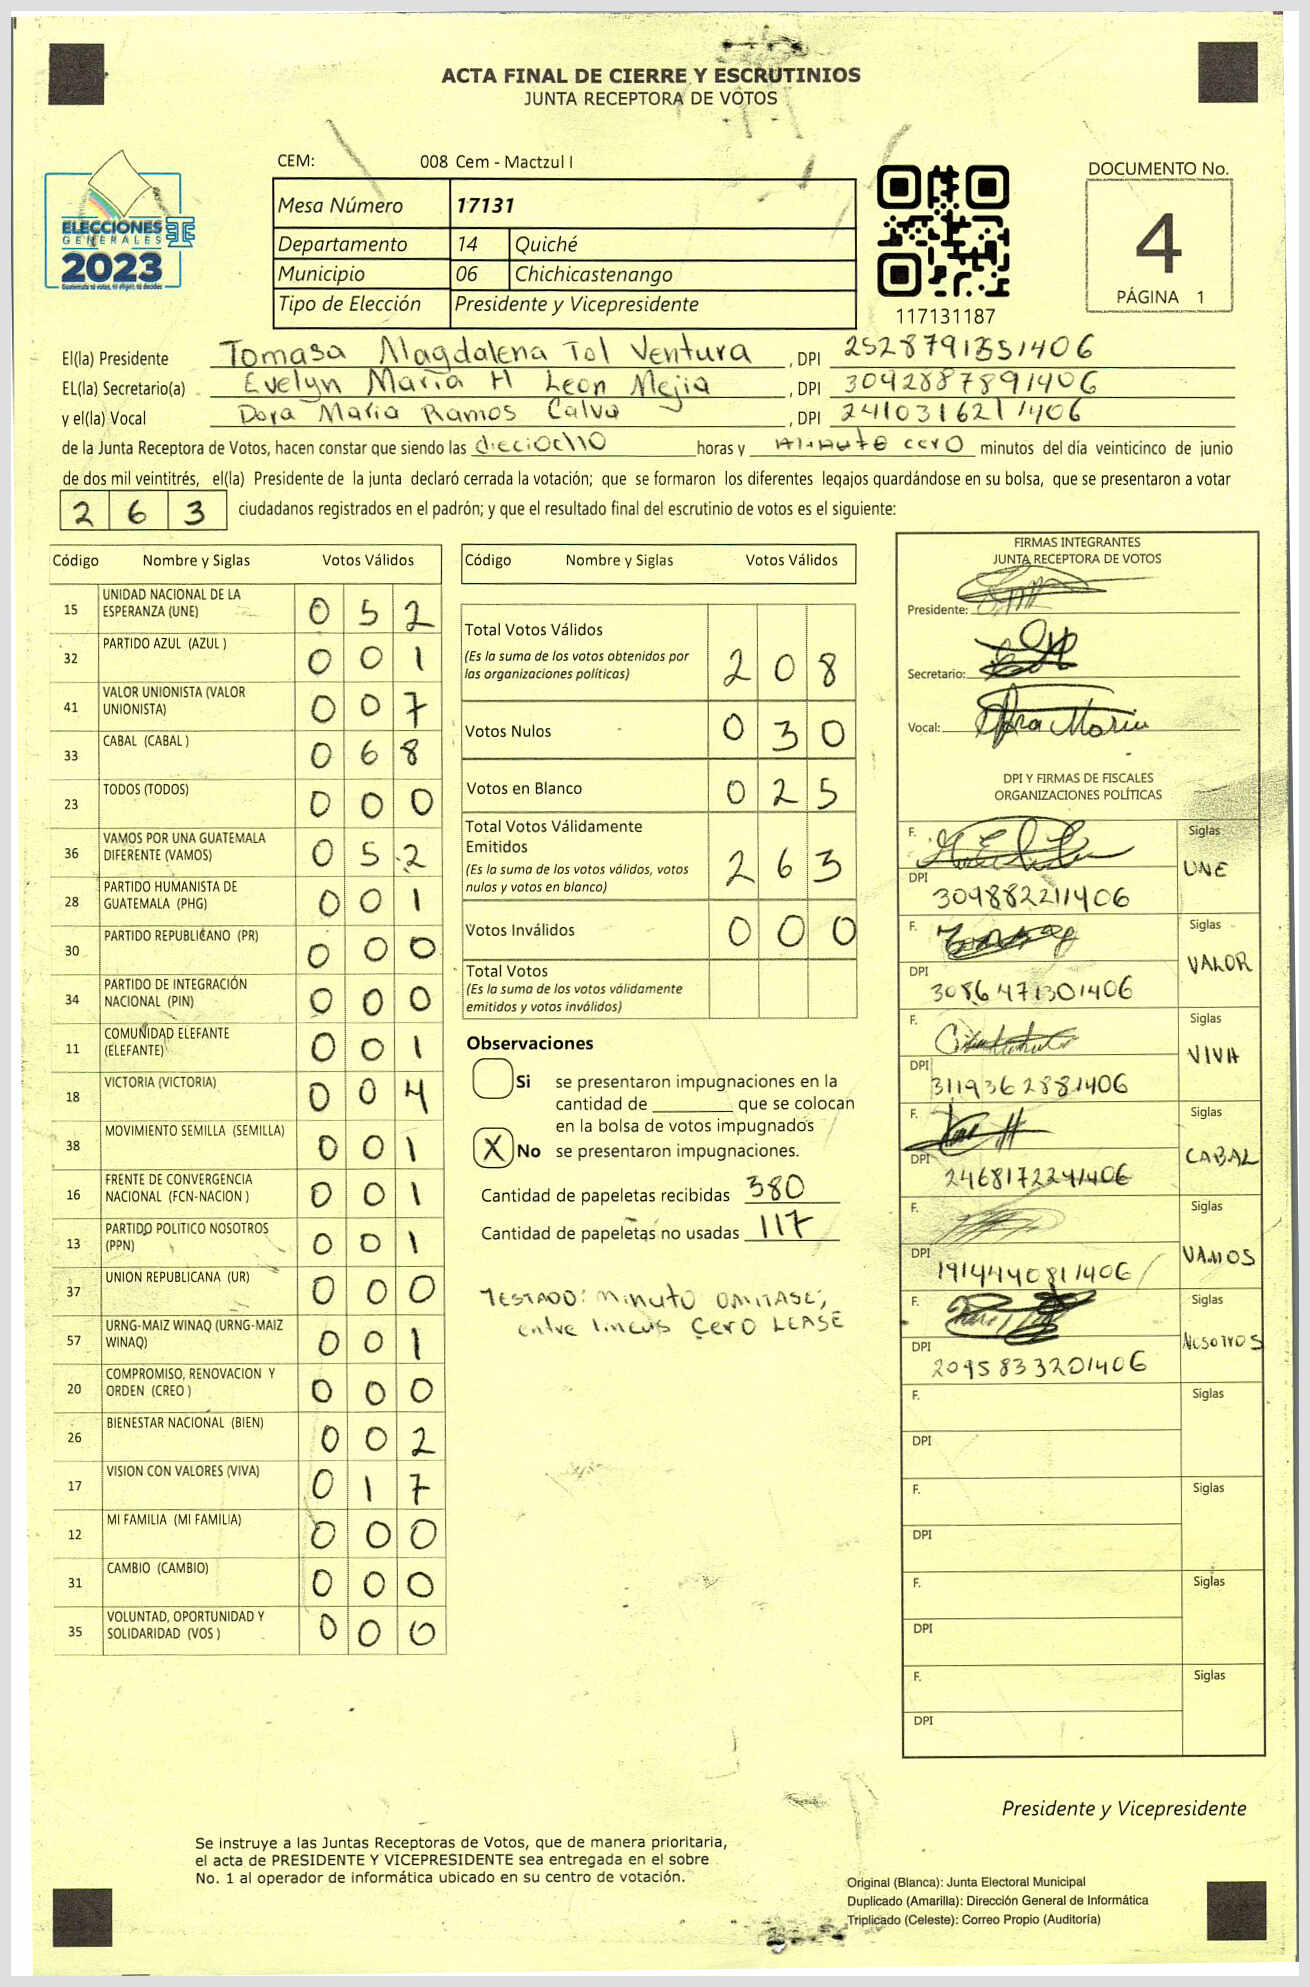 ACTA FINAL DE CIERRE Y ESCRUTINIOS
JUNTA RECEPTORA DE VOTOS
CEM: 008 Cem - Mactzul I
ELECCIONES
GENERALES
2023
Guatemala tú votas, tú eliges, tú decides
Mesa Número 17131
Departamento 14 Quiché
Municipio 06 Chichicastenango
Tipo de Elección Presidente y Vicepresidente
117131187
DOCUMENTO No.
4
PÁGINA 1
El(la) Presidente Tomasa Magdalena Tol Ventura , DPI 2528791351406
EL(la) Secretario(a) Evelyn María H Leon Mejia , DPI 3042887891406
y el(la) Vocal Dora María Ramos Calva , DPI 2410316211406
de la Junta Receptora de Votos, hacen constar que siendo las dieciocho horas y minuto cero minutos del día veinticinco de junio
de dos mil veintitrés, el(la) Presidente de la junta declaró cerrada la votación; que se formaron los diferentes legajos guardándose en su bolsa, que se presentaron a votar
2 6 3 ciudadanos registrados en el padrón; y que el resultado final del escrutinio de votos es el siguiente:
Código Nombre y Siglas Votos Válidos
15 UNIDAD NACIONAL DE LA ESPERANZA (UNE) 0 5 2
32 PARTIDO AZUL (AZUL ) 0 0 1
41 VALOR UNIONISTA (VALOR UNIONISTA) 0 0 7
33 CABAL (CABAL ) 0 6 8
23 TODOS (TODOS) 0 0 0
36 VAMOS POR UNA GUATEMALA DIFERENTE (VAMOS) 0 5 2
28 PARTIDO HUMANISTA DE GUATEMALA (PHG) 0 0 1
30 PARTIDO REPUBLICANO (PR) 0 0 0
34 PARTIDO DE INTEGRACIÓN NACIONAL (PIN) 0 0 0
11 COMUNIDAD ELEFANTE (ELEFANTE) 0 0 1
18 VICTORIA (VICTORIA) 0 0 4
38 MOVIMIENTO SEMILLA (SEMILLA) 0 0 1
16 FRENTE DE CONVERGENCIA NACIONAL (FCN-NACION ) 0 0 1
13 PARTIDO POLITICO NOSOTROS (PPN) 0 0 1
37 UNION REPUBLICANA (UR) 0 0 0
57 URNG-MAIZ WINAQ (URNG-MAIZ WINAQ) 0 0 1
20 COMPROMISO, RENOVACION Y ORDEN (CREO ) 0 0 0
26 BIENESTAR NACIONAL (BIEN) 0 0 2
17 VISION CON VALORES (VIVA) 0 1 7
12 MI FAMILIA (MI FAMILIA) 0 0 0
31 CAMBIO (CAMBIO) 0 0 0
35 VOLUNTAD, OPORTUNIDAD Y SOLIDARIDAD (VOS ) 0 0 0
Código Nombre y Siglas Votos Válidos
Total Votos Válidos
(Es la suma de los votos obtenidos por
las organizaciones políticas) 2 0 8
Votos Nulos 0 3 0
Votos en Blanco 0 2 5
Total Votos Válidamente
Emitidos
(Es la suma de los votos válidos, votos
nulos y votos en blanco) 2 6 3
Votos Inválidos 0 0 0
Total Votos
(Es la suma de los votos válidamente
emitidos y votos inválidos)
Observaciones
Si se presentaron impugnaciones en la
cantidad de ________ que se colocan
en la bolsa de votos impugnados
X No se presentaron impugnaciones.
Cantidad de papeletas recibidas 380
Cantidad de papeletas no usadas 117
TESTADO: minuto OMITASE,
entre lineas CERO LEASE
FIRMAS INTEGRANTES
JUNTA RECEPTORA DE VOTOS
Presidente:
Secretario:
Vocal:
DPI Y FIRMAS DE FISCALES
ORGANIZACIONES POLÍTICAS
F. Siglas
UNE
DPI 309882211406
F. Siglas
VALOR
DPI 3086471301406
F. Siglas
VIVA
DPI 3119362881406
F. Siglas
CABAL
DPI 2468172241406
F. Siglas
VAMOS
DPI 1914440811406
F. Siglas
NOSOTROS
DPI 2095833201406
F. Siglas
DPI
F. Siglas
DPI
F. Siglas
DPI
F. Siglas
DPI
Presidente y Vicepresidente
Se instruye a las Juntas Receptoras de Votos, que de manera prioritaria,
el acta de PRESIDENTE Y VICEPRESIDENTE sea entregada en el sobre
No. 1 al operador de informática ubicado en su centro de votación.
Original (Blanca): Junta Electoral Municipal
Duplicado (Amarilla): Dirección General de Informática
Triplicado (Celeste): Correo Propio (Auditoría)